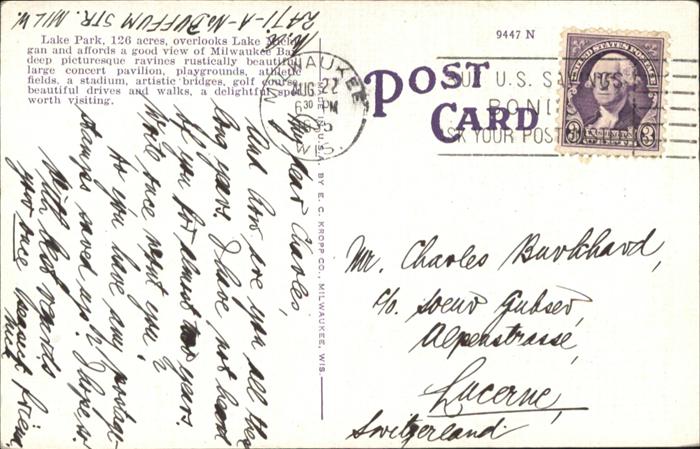 2471-A-N. BUFFUM STR. MILW.
Wis.
Lake Park, 126 acres, overlooks Lake Michi-
gan and affords a good view of Milwaukee Bay,
deep picturesque ravines rustically beautiful,
large concert pavilion, playgrounds, athletic
fields, a stadium, artistic bridges, golf course,
beautiful drives and walks, a delightful spot
worth visiting.
My dear Charles,
And how are you all the
long years. I have not heard
of you for almost two years.
Wrote once
Do you have any postage-
stamps saved up? I hope so.
With best regards
your once
friend
MADE IN U.S.A. BY E. C. KROPP CO., MILWAUKEE, WIS.
9447 N
POST
CARD
MILWAUKEE
AUG 22
6 30 PM
WIS.
U.S. SAVINGS
BONDS
ASK YOUR POST
UNITED STATES POSTAGE
3 3
Mr. Charles Burkhard,
c/o Soeur Gubser,
Alpenstrasse,
Lucerne,
Switzerland